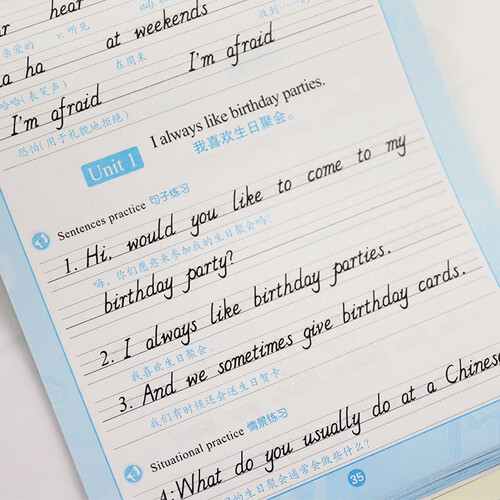 hear
亲爱的 v. 听见 adj. 收到……
ha at weekends
哈哈(表笑声) 在周末
I'm afraid I'm afraid
恐怕(用于礼貌地拒绝)
Unit 1 I always like birthday parties.
我喜欢生日聚会。
Sentences practice 句子练习
1. Hi, would you like to come to my
嗨，你们愿意来参加我的生日聚会吗？
birthday party?
2. I always like birthday parties.
我喜欢生日聚会。
3. And we sometimes give birthday cards.
我们有时候还会送生日贺卡。
Situational practice 情景练习
A: What do you usually do at a Chinese
生日聚会通常会做些什么？
35